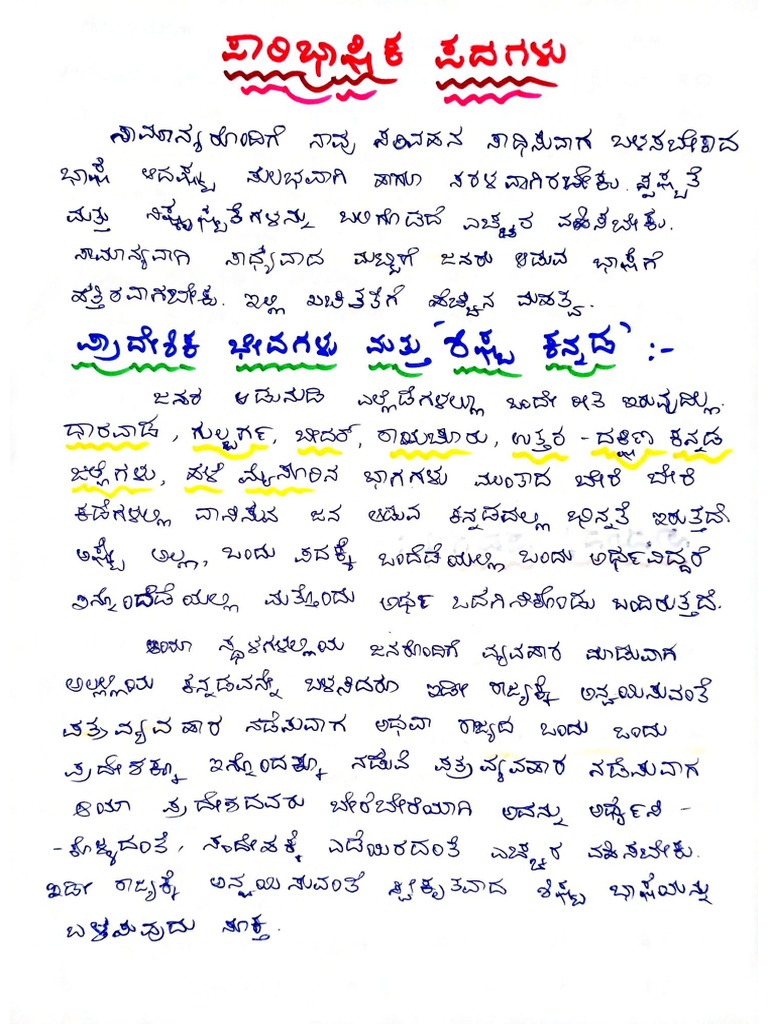 ಪಾರಿಭಾಷಿಕ ಪದಗಳು
ಸಾಮಾನ್ಯರೊಂದಿಗೆ ನಾವು ಸಂವಹನ ಸಾಧಿಸುವಾಗ ಬಳಸಬೇಕಾದ
ಭಾಷೆ ಆದಷ್ಟು ಸುಲಭವಾಗಿ ಹಾಗೂ ಸರಳವಾಗಿರಬೇಕು. ಸ್ಪಷ್ಟತೆ
ಮತ್ತು ನಿಷ್ಕೃಷ್ಟತೆಗಳನ್ನು ಬಲಿಗೊಡದೆ ಎಚ್ಚರ ವಹಿಸಬೇಕು.
ಸಾಮಾನ್ಯವಾಗಿ ಸಾಧ್ಯವಾದ ಮಟ್ಟಿಗೆ ಜನರು ಆಡುವ ಭಾಷೆಗೆ
ಹತ್ತಿರವಾಗಬೇಕು. ಇಲ್ಲಿ ಖಚಿತತೆಗೆ ಹೆಚ್ಚಿನ ಮಹತ್ವ.
ಪ್ರಾದೇಶಿಕ ಭೇದಗಳು ಮತ್ತು 'ಶಿಷ್ಟ ಕನ್ನಡ' :-
ಜನರ ಆಡುನುಡಿ ಎಲ್ಲೆಡೆಗಳಲ್ಲೂ ಒಂದೇ ರೀತಿ ಇರುವುದಿಲ್ಲ.
ಧಾರವಾಡ, ಗುಲ್ಬರ್ಗ, ಬೀದರ್, ರಾಯಚೂರು, ಉತ್ತರ - ದಕ್ಷಿಣ ಕನ್ನಡ
ಜಿಲ್ಲೆಗಳು, ಹಳೆ ಮೈಸೂರಿನ ಭಾಗಗಳು ಮುಂತಾದ ಬೇರೆ ಬೇರೆ
ಕಡೆಗಳಲ್ಲಿ ವಾಸಿಸುವ ಜನ ಆಡುವ ಕನ್ನಡದಲ್ಲಿ ಭಿನ್ನತೆ ಇರುತ್ತದೆ.
ಅಷ್ಟೇ ಅಲ್ಲ, ಒಂದು ಪದಕ್ಕೆ ಒಂದೆಡೆಯಲ್ಲಿ ಒಂದು ಅರ್ಥವಿದ್ದರೆ
ಇನ್ನೊಂದೆಡೆಯಲ್ಲಿ ಮತ್ತೊಂದು ಅರ್ಥ ಒದಗಿಸಿಕೊಂಡು ಬಂದಿರುತ್ತದೆ.
ಆಯಾ ಸ್ಥಳಗಳಲ್ಲಿಯ ಜನರೊಂದಿಗೆ ವ್ಯವಹಾರ ಮಾಡುವಾಗ
ಅಲ್ಲಲ್ಲಿಯ ಕನ್ನಡವನ್ನೇ ಬಳಸಿದರೂ ಇಡೀ ರಾಜ್ಯಕ್ಕೆ ಅನ್ವಯಿಸುವಂತೆ
ಪತ್ರವ್ಯವಹಾರ ನಡೆಸುವಾಗ ಅಥವಾ ರಾಜ್ಯದ ಒಂದು ಒಂದು
ಪ್ರದೇಶಕ್ಕೂ ಇನ್ನೊಂದಕ್ಕೂ ನಡುವೆ ಪತ್ರವ್ಯವಹಾರ ನಡೆಸುವಾಗ
ಆಯಾ ಪ್ರದೇಶದವರು ಬೇರೆಬೇರೆಯಾಗಿ ಅದನ್ನು ಅರ್ಥೈಸಿ -
- ಕೊಳ್ಳದಂತೆ, ಸಂದೇಹಕ್ಕೆ ಎಡೆಯಿರದಂತೆ ಎಚ್ಚರ ವಹಿಸಬೇಕು.
ಇಡೀ ರಾಜ್ಯಕ್ಕೆ ಅನ್ವಯಿಸುವಂತೆ ಸ್ವೀಕೃತವಾದ ಶಿಷ್ಟ ಭಾಷೆಯನ್ನು
ಬಳಸುವುದು ಸೂಕ್ತ.